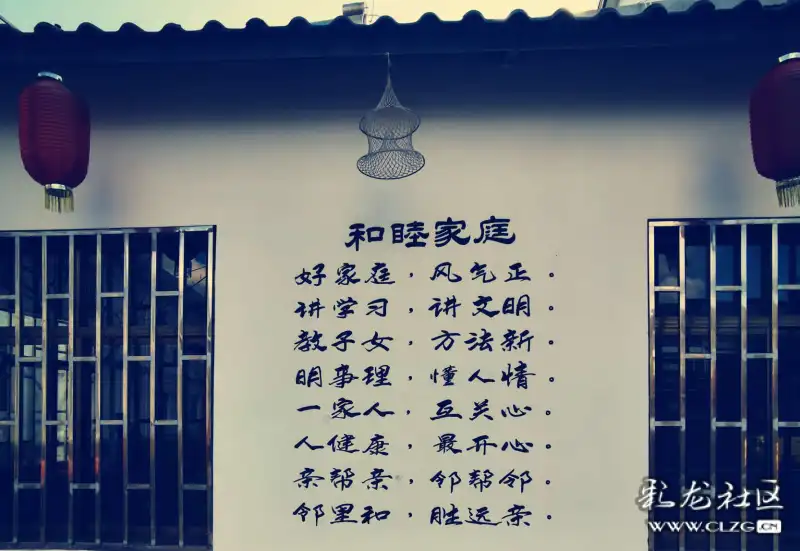 和睦家庭
好家庭，风气正。
讲学习，讲文明。
教子女，方法新。
明事理，懂人情。
一家人，互关心。
人健康，最开心。
亲帮亲，邻帮邻。
邻里和，胜远亲。
彩龙社区
WWW.CLZG.CN